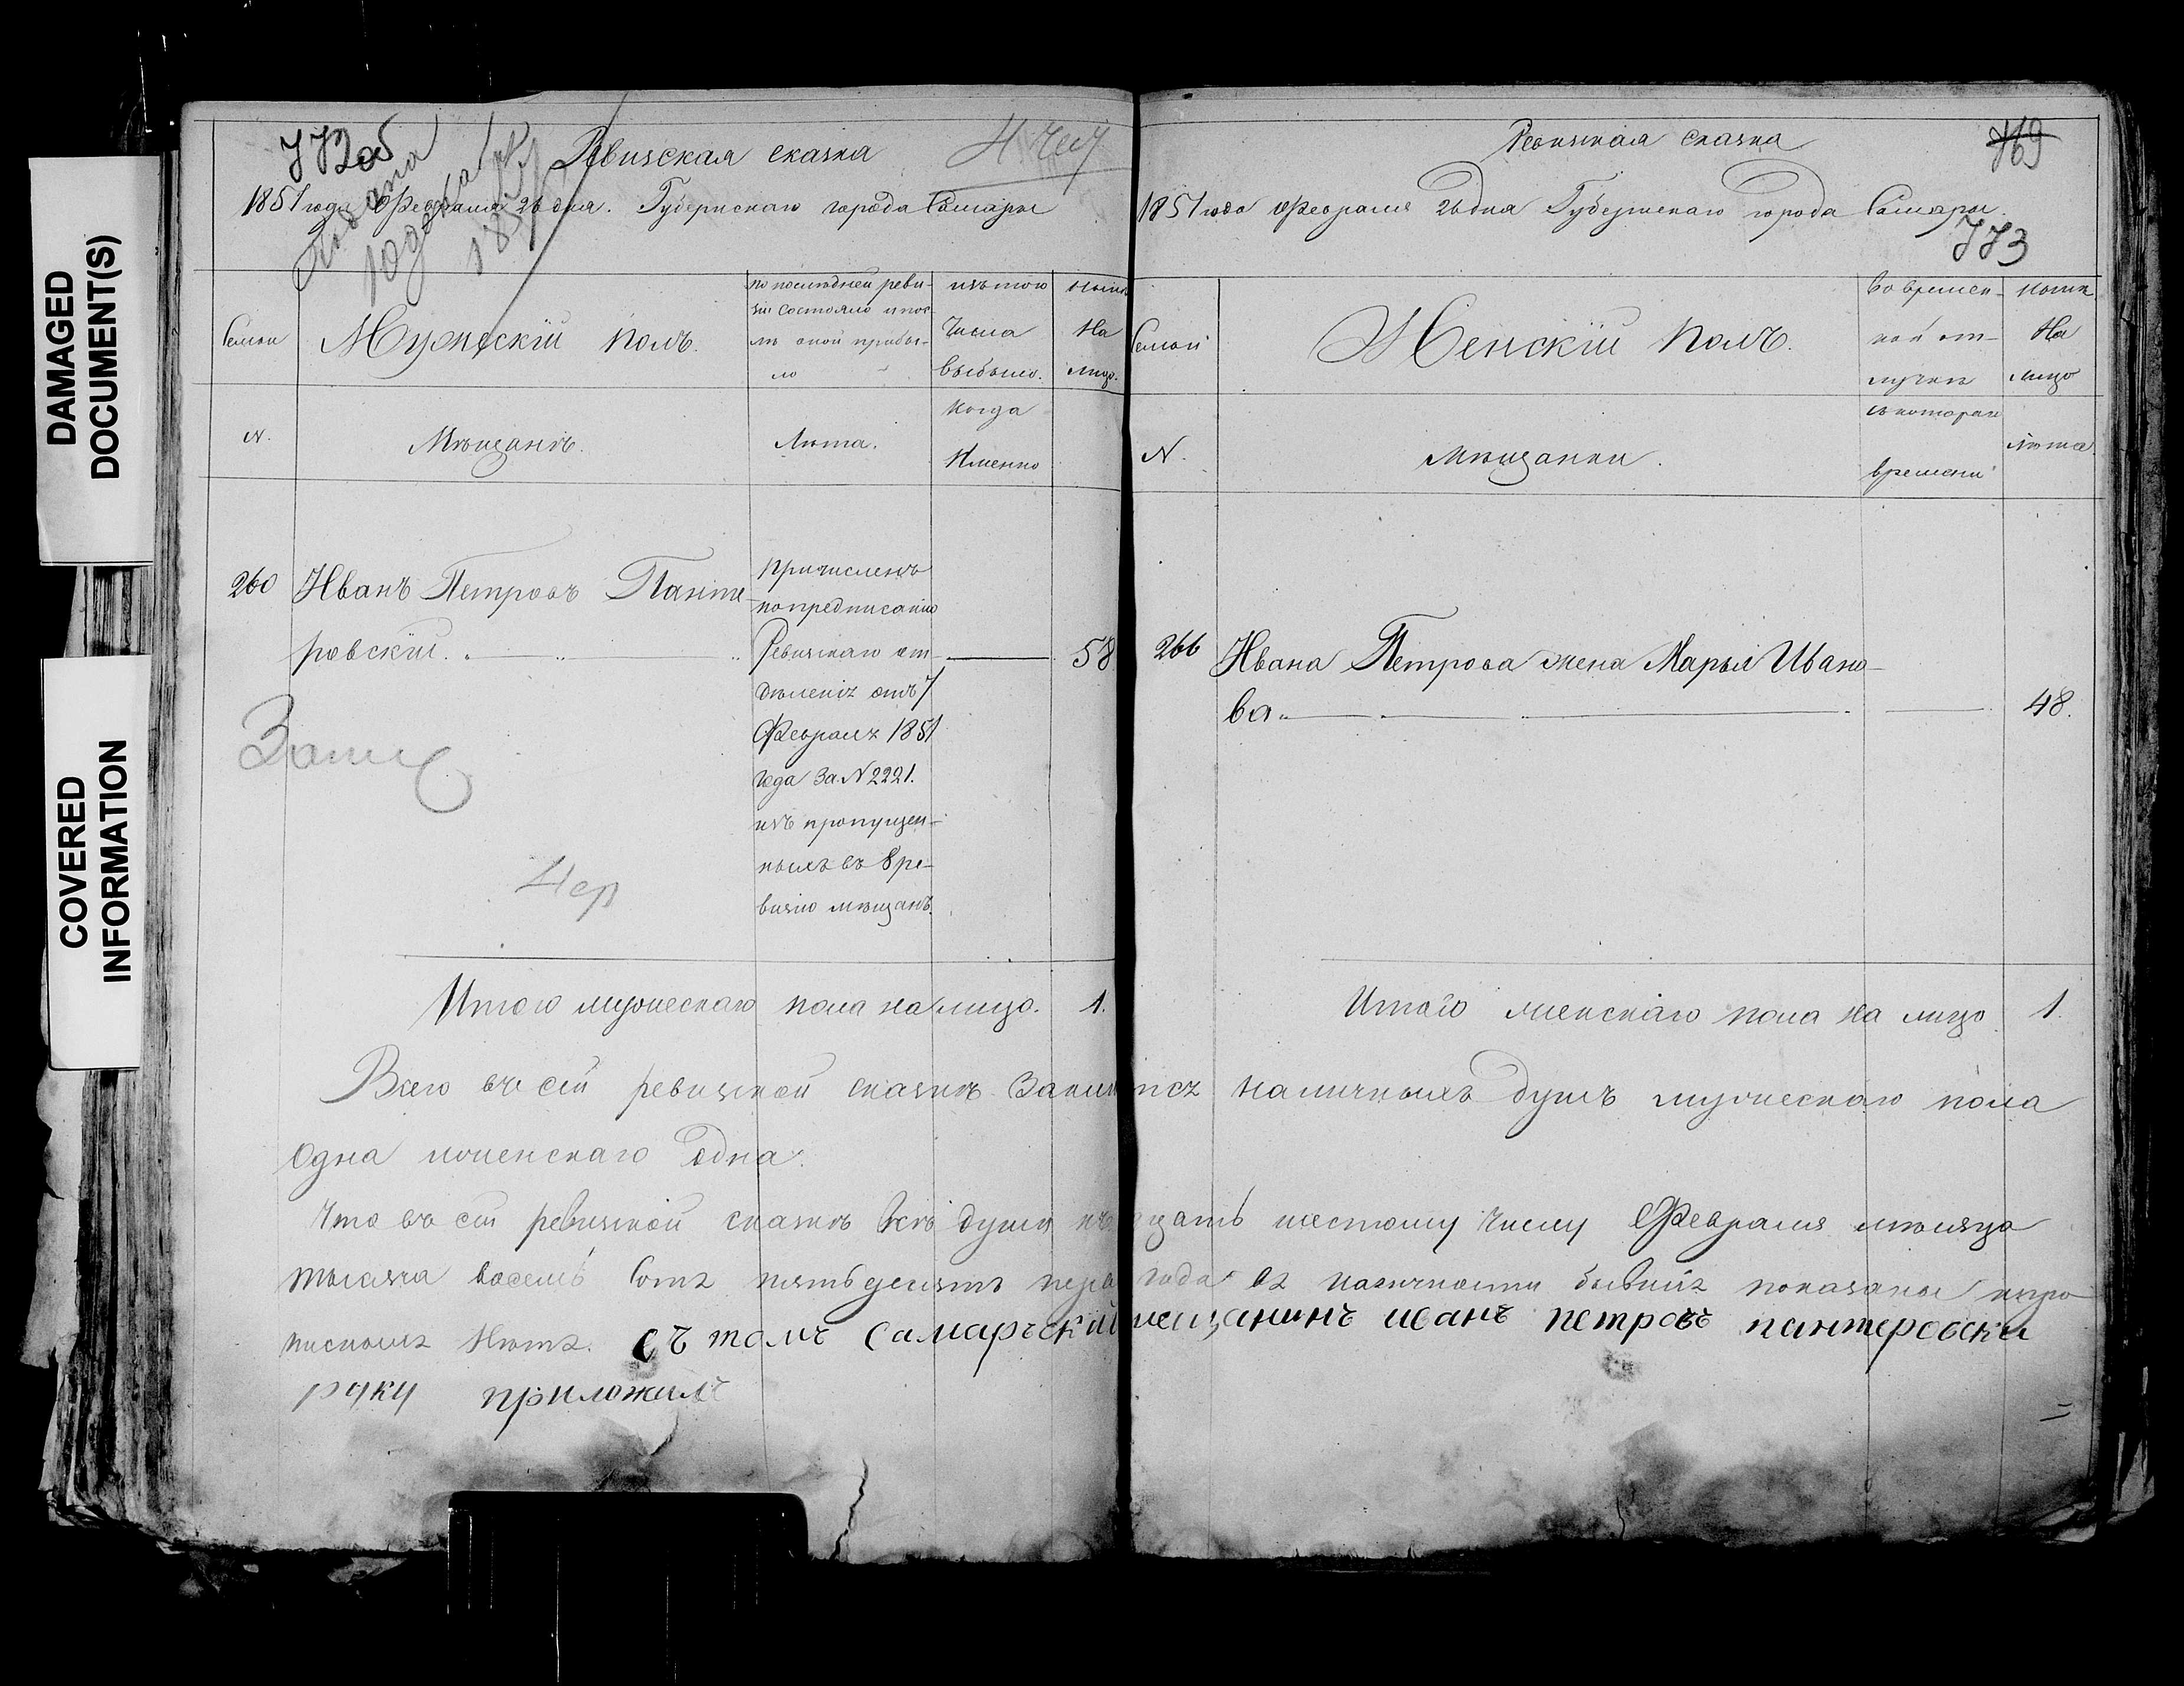 DAMAGED
DOCUMENT(S)
COVERED
INFORMATION
772 об
Ревизская сказка
1851 года Февраля 26 дня. Губернскаго города Самары
Семьи
Мужескій полъ.
по последней реви-
зіи состояло и пос-
лѣ оной прибы-
ло
изъ того
числа
выбыло.
ныне
на
лицо.
N.
Мѣщанѣ.
Лѣта.
когда
Именно
260
Иванъ Петровъ Панте-
ровскій.
Причисленъ
по предписанію
Ревизскаго от-
дѣленія отъ 7
Февраля 1851
года за N 2221.
изъ пропущен-
ныхъ въ 8 ре-
визію мѣщанъ.
58
Итого мужескаго пола на лицо. 1.
Ревизская сказка
769
1851 года Февраля 26 дня Губернскаго города Самары.
773
Семьи
Женскій полъ.
во времен-
ной от-
лучкѣ
ныне
на
лицо
N.
Мѣщанки.
съ котораго
времени
Лѣта
266
Ивана Петрова жена Марья Ивано-
ва
48.
Итого женскаго пола на лицо 1.
Всего въ сей ревизской сказкѣ наличныхъ душъ мужескаго пола
одна и женскаго одна.
Что въ сей ревизской сказкѣ всѣ души къ шестому числу Февраля месяца
тысяча восемь сотъ пятьдесятъ года въ наличности бывшія показаны и про
писныхъ нѣтъ. Съ томъ Самарьскій мещанинъ иванъ петровъ пантеровски
руку приложилъ